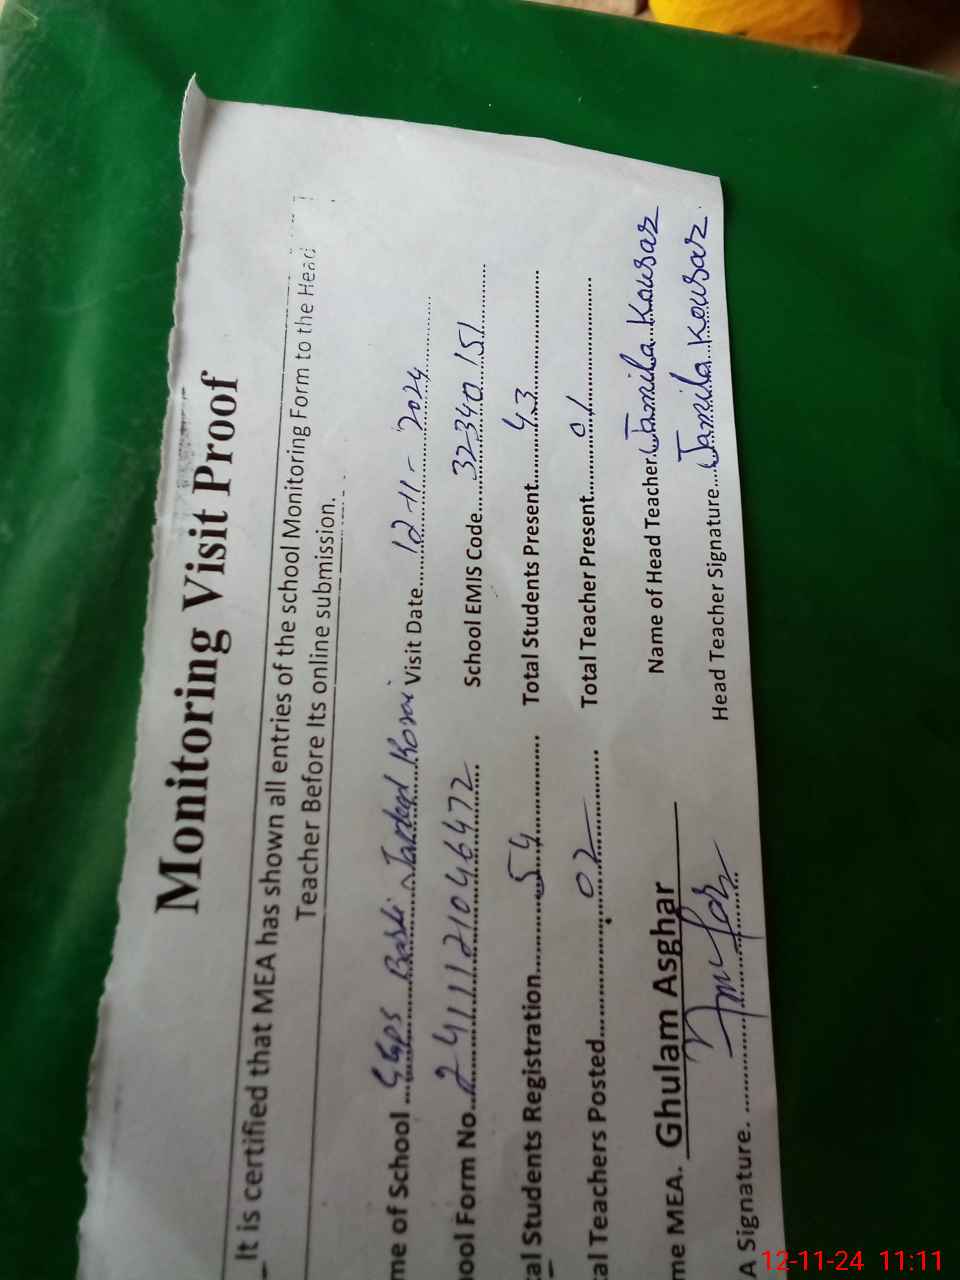 Monitoring Visit Proof
It is certified that MEA has shown all entries of the school Monitoring Form to the Head
Teacher Before Its online submission.
me of School ...GGPS Basti Jarded Korai Visit Date...12-11-2024
ool Form No...241112104646472 School EMIS Code...32340151
al Students Registration...54 Total Students Present...43
al Teachers Posted...02 Total Teacher Present...01
me MEA. Ghulam Asghar Name of Head Teacher.Jamila Kousar
A Signature. Head Teacher Signature...Jamila Kousar
12-11-24 11:11